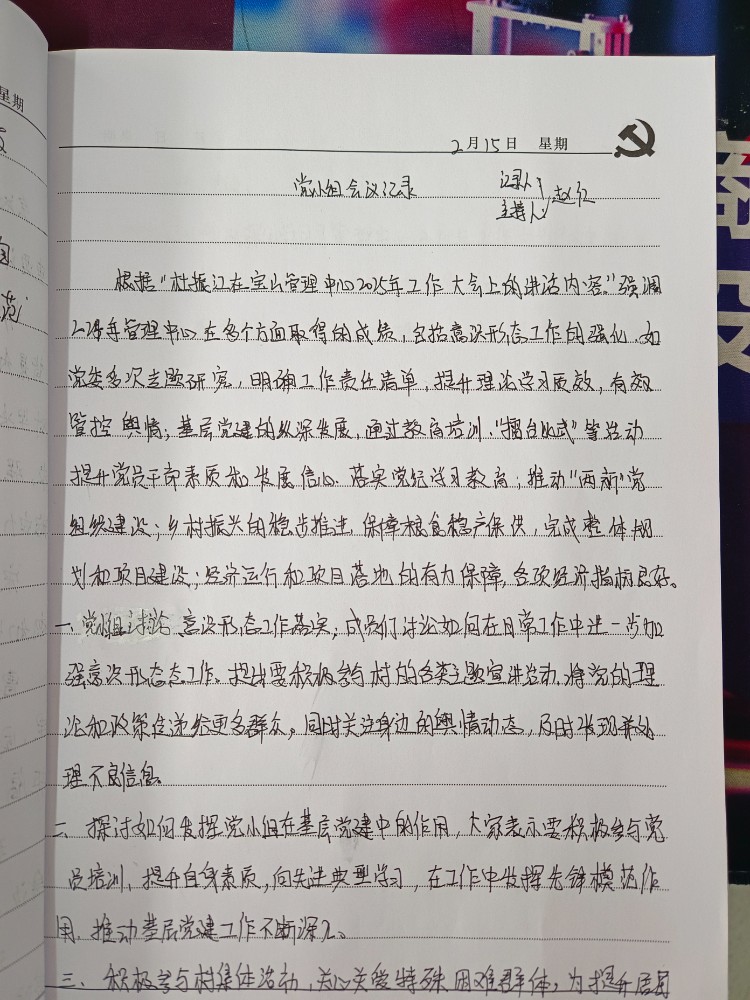 星期
范
2月15日 星期
党小组会议记录
记录人
主持人 赵红
根据"杜振江在宝山管理中心2025年工作大会上的讲话内容"强调
24年管理中心在多个方面取得的成绩,包括意识形态工作的强化,如
党委多次专题研究,明确工作责任清单,提升理论学习质效,有效
管控舆情;基层党建的纵深发展,通过教育培训、"擂台比武"等活动
提升党员干部素质和发展信心,落实党纪学习教育;推动"两新"党
组织建设;乡村振兴的稳步推进,保障粮食稳产保供,完成整体规
划和项目建设;经济运行和项目落地的有力保障,各项经济指标良好。
一、党小组讨论意识形态工作落实,成员们讨论如何在日常工作中进一步加
强意识形态态工作。提出要积极参与村的各类主题宣讲活动,将党的理
论和政策传递给更多群众。同时关注身边的舆情动态,及时发现并处
理不良信息。
二、探讨如何发挥党小组在基层党建中的作用,大家表示要积极参与党
员培训、提升自身素质,向先进典型学习,在工作中发挥先锋模范作
用,推动基层党建工作不断深入。
三、积极参与村集体活动,关心关爱特殊困难群体,为提升居民